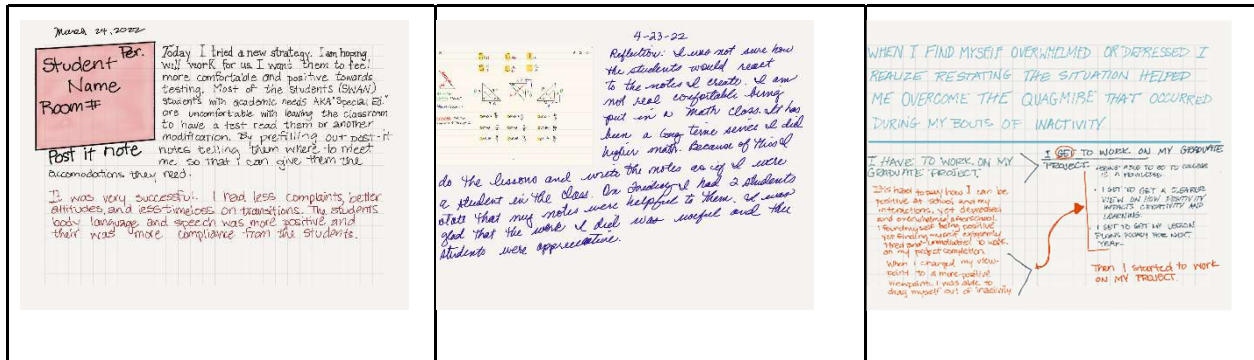 March 24, 2022
Per.
Student
Name
Room#
Post it note
Today I tried a new strategy. I am hoping
will work for us I want them to feel
more comfortable and positive towards
testing. Most of the students (SWAN)
students with academic needs AKA "Special Ed."
are uncomfortable with leaving the classroom
to have a test read them or another
modification. By prefilling out post-it
notes telling them where to meet
me so that I can give them the
accomodations they need.
It was very successful. I had less complaints, better
attitudes, and less time loss on transitions. The students
body language and speech was more positive and
their was more compliance from the students.
4-23-22
Reflection: I was not sure how
the students would react
to the notes I create. I am
not real comfortable being
put in a math class. It has
been a long time since I did
higher math. Because of this I
do the lessons and write the notes as if I were
a student in the class. On Tuesday I had 2 students
state that my notes were helpful to them. I was
glad that the work I did was useful and the
students were appreciative.
WHEN I FIND MYSELF OVERWHELMED OR DEPRESSED I
REALIZE RESTATING THE SITUATION HELPED
ME OVERCOME THE QUAGMIRE THAT OCCURRED
DURING MY BOUTS OF INACTIVITY.
I HAVE TO WORK ON MY
GRADUATE PROJECT.
It is hard to say how I can be
positive at school and my
interactions, yet depressed
and overwhelmed afterschool.
I found myself being positive
yet finding myself extremely
tired and unmotivated to work
on my project completion.
When I changed my view-
point to a more positive
viewpoint. I was able to
drag myself out of inactivity
I GET TO WORK ON MY GRADUATE
PROJECT.
• BEING ABLE TO GO TO COLLEGE
IS A
• I GET TO GET A CLEARER
VIEW ON HOW POSITIVITY
IMPACTS CREATIVITY AND
LEARNING.
• I GET TO GET MY LESSON
PLANS READY FOR NEXT
YEAR.
Then I started to work
ON MY PROJECT.